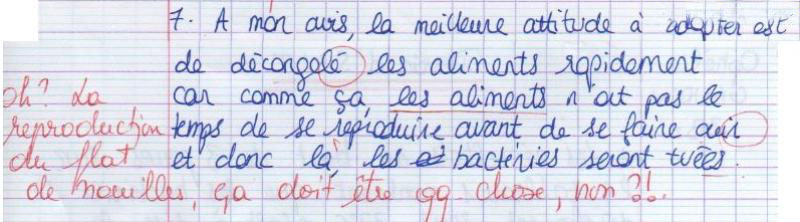 7. A mon avis, la meilleure attitude à adopter est
de décongelé les aliments rapidement
car comme ça, les aliments n'ont pas le
temps de se reproduire avant de se faire cuir
et donc là, les bactéries seront tuées.
oh? La
reproduction
du plat
de nouilles, ça doit être qq chose, non ?!.